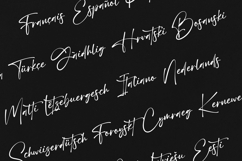 Français Español
Türkçe Gàidhlig Hrvatski Bosanski
Malti Lëtzebuergesch Italiano Nederlands
Schwiizerdütsch Føroyskt Cymraeg Kernewek
Eesti